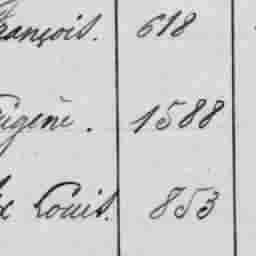 François. 618
Eugène. 1588
Louis. 853